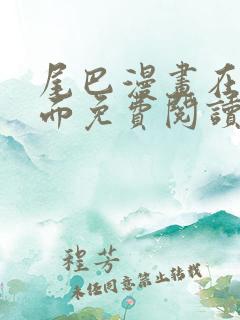 尾巴漫畫在
而免費閱讀
程芳
未經同意禁止轉載